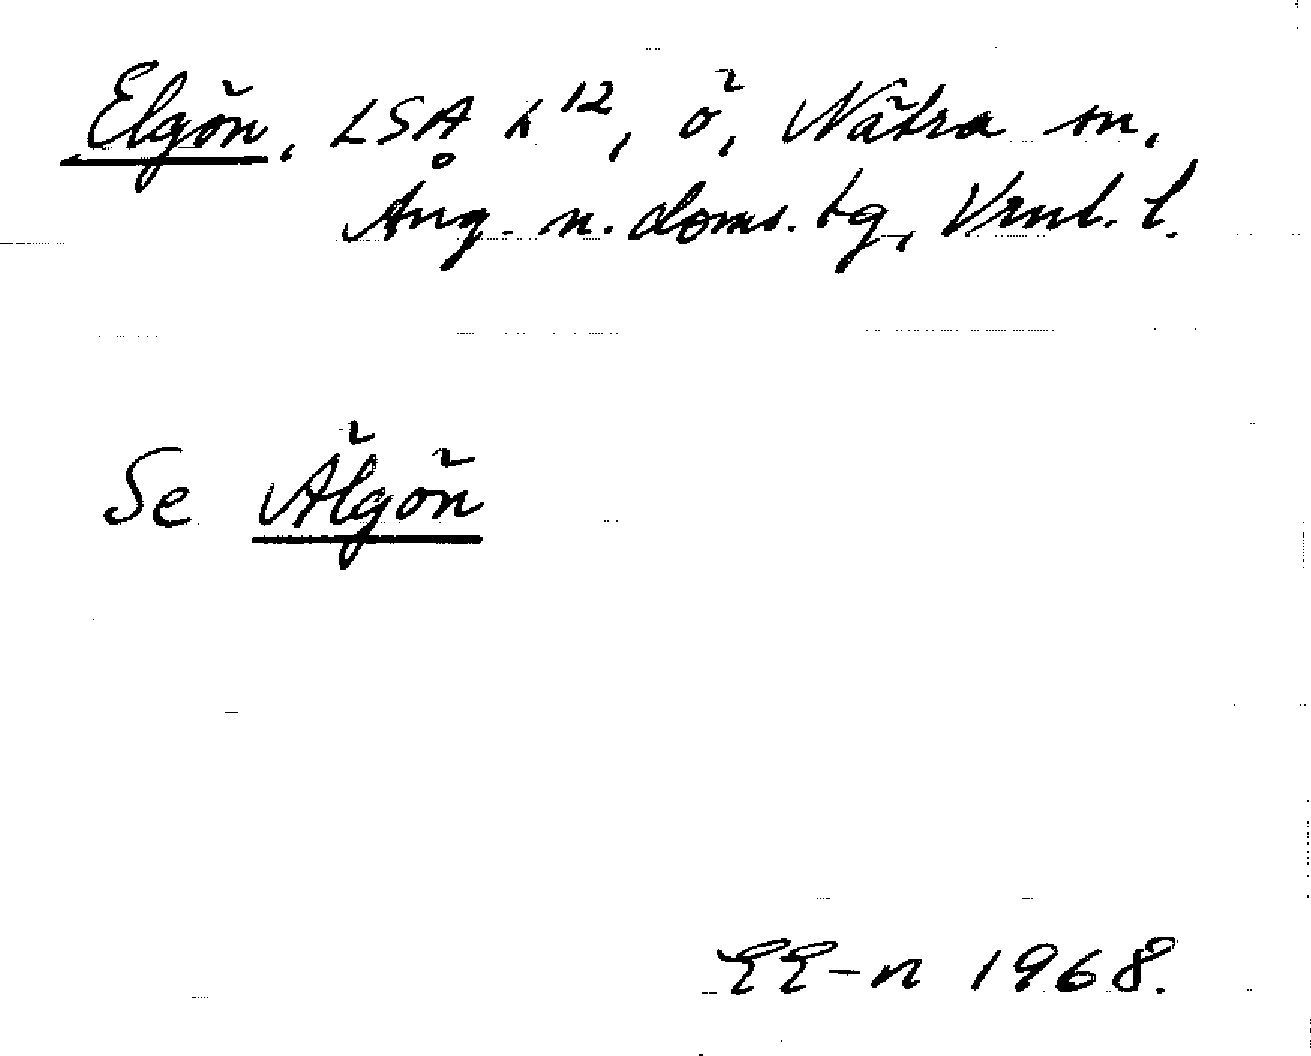 Elgön, LSA k12, ö, Nätra sn,
Ång. n. doms. tg, Vrnl. l.
Se Älgön
EE-n 1968.